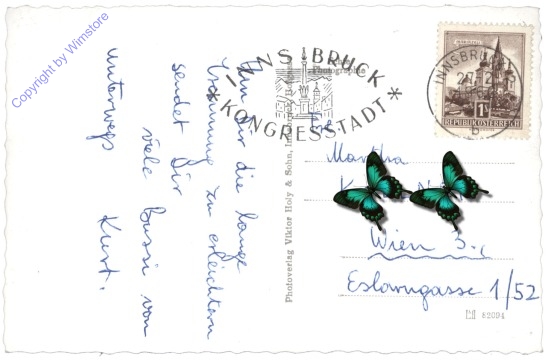 Copyright by Wimstore
Um Dir die lange
Trennung zu erleichtern
sendet Dir
viele Bussi von
unterwegs
Kurt.
Photoverlag Viktor Holy & Sohn, Innsbruck
Photographie
INNSBRUCK
* KONGRESSSTADT *
INNSBRUCK
1S
REPUBLIK ÖSTERREICH
b
Martha
Wien 3.,
Eslarngasse 1/52
82094